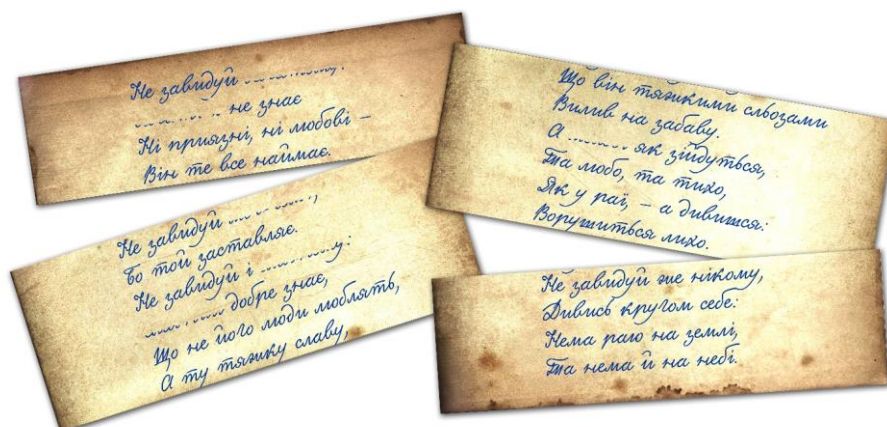 Не завидуй
не знає
Ні приязні, ні любові –
Він те все наймає.
Не завидуй
Бо той заставляє.
Не завидуй і
добре знає,
Що не його люди люблять,
А ту тяжку славу,
Що він тяжкими сльозами
Вилив на забаву.
А ........ як зійдуться,
Та любо, та тихо,
Як у раї, – а дивишся:
Ворушиться лихо.
Не завидуй же нікому,
Дивись кругом себе:
Нема раю на землі,
Та нема й на небі.